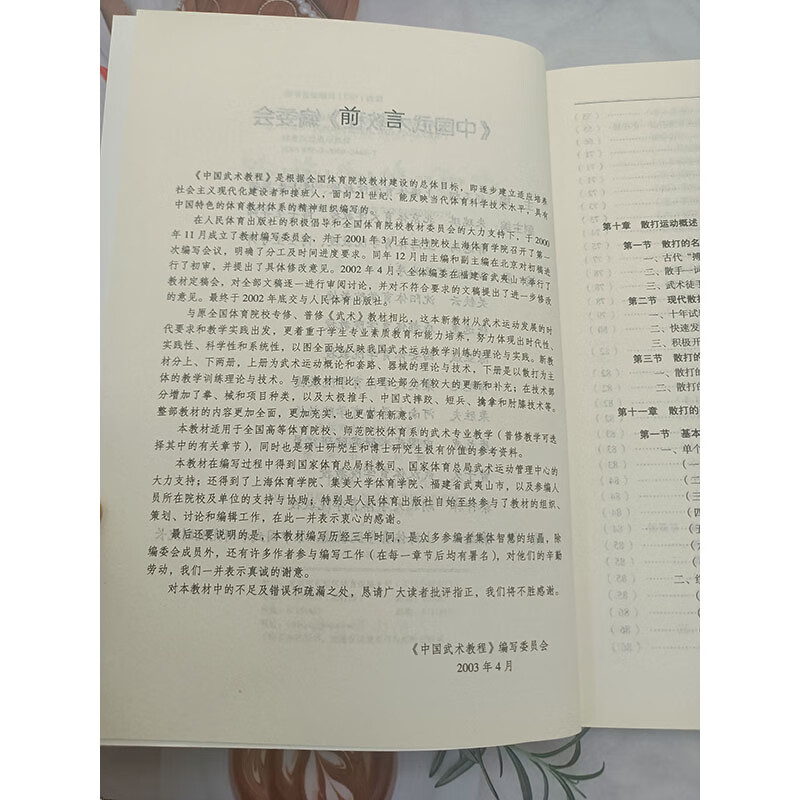 前 言
《中国武术教程》是根据全国体育院校教材建设的总体目标，即逐步建立适应培养
社会主义现代化建设者和接班人，面向21世纪、能反映当代体育科学技术水平，具有
中国特色的体育教材体系的精神组织编写的。
在人民体育出版社的积极倡导和全国体育院校教材委员会的大力支持下，于2000
年11月成立了教材编写委员会，并于2001年3月在主持院校上海体育学院召开了第一
次编写会议，明确了分工及时间进度要求。同年12月由主编和副主编在北京对初稿进
行了初审，并提出了具体修改意见。2002年4月，全体编委在福建省武夷山市举行了
教材定稿会，对全部文稿逐一进行审阅讨论，并对不符合要求的文稿提出了进一步修改
的意见。最终于2002年底交与人民体育出版社。
与原全国体育院校专修、普修《武术》教材相比，这本新教材从武术运动发展的时
代要求和教学实践出发，更着重于学生专业素质教育和能力培养，努力体现出时代性、
实践性、科学性和系统性，以图全面地反映我国武术运动教学训练的理论与实践。新教
材分上、下两册，上册为武术运动概论和套路、器械的理论与技术，下册是以散打为主
体的教学训练理论与技术。与原教材相比，在理论部分有较大的更新和补充；在技术部
分增加了拳、械和项目种类，以及太极推手、中国式摔跤、短兵、擒拿和肘膝技术等。
整部教材的内容更加全面，更加充实，也更富有新意。
本教材适用于全国高等体育院校、师范院校体育系的武术专业教学（普修教学可选
择其中的有关章节），同时也是硕士研究生和博士研究生极有价值的参考资料。
本教材在编写过程中得到国家体育总局科教司、国家体育总局武术运动管理中心的
大力支持；还得到了上海体育学院、集美大学体育学院、福建省武夷山市，以及参编人
员所在院校及单位的支持与协助；特别是人民体育出版社自始至终参与了教材的组织、
策划、讨论和编辑工作，在此一并表示衷心的感谢。
最后还要说明的是，本教材编写历经三年时间，是众多参编者集体智慧的结晶，除
编委会成员外，还有许多作者参与编写工作（在每一章节后均有署名），对他们的辛勤
劳动，我们一并表示真诚的谢意。
对本教材中的不足及错误和疏漏之处，恳请广大读者批评指正，我们将不胜感谢。
《中国武术教程》编写委员会
2003年4月
第十章 散打运动概述
第一节 散打的名
一、古代“搏
二、散手一词
三、武术徒手
第二节 现代散打
一、十年试
二、快速发
三、积极开
第三节 散打的
一、散打的
二、散打的
第十一章 散打的
第一节 基本
一、单个